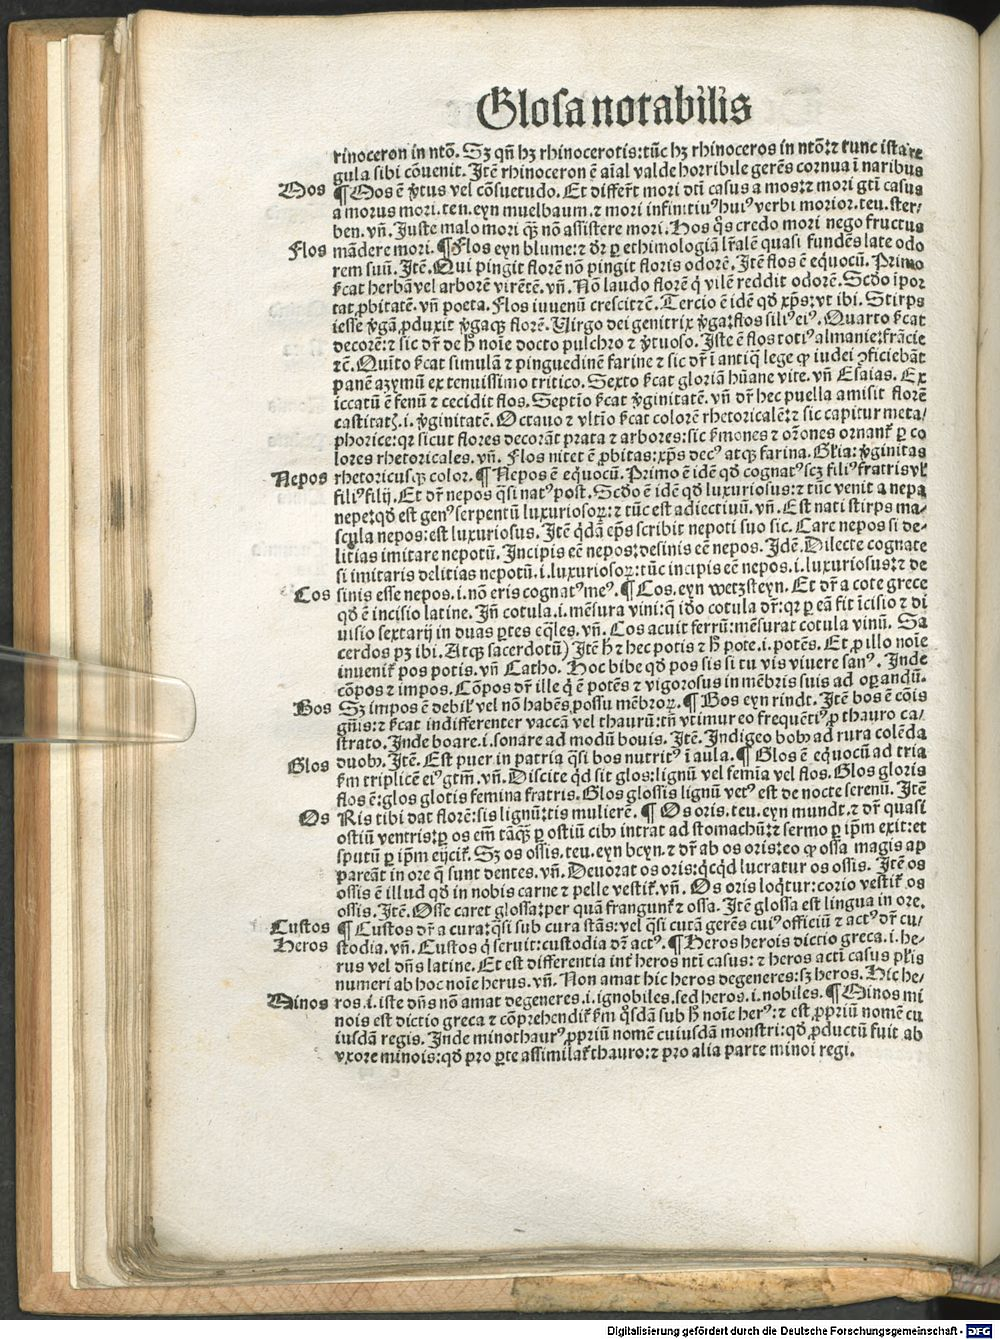 Glosa notabilis
rinoceron in ntō. Sꝫ qñ hꝫ rhinocerotis: tūc hꝫ rhinoceros in ntō: ⁊ tunc ista re
gula sibi cōuenit. Itē rhinoceron ē aīal valde horribile gerēs cornua ī naribus
Mos ¶ Mos ē v̓tus vel cōsuetudo. Et differt̄ mori dti̅ casus a mos: ⁊ mori gti̅ casus
a morus mori. teu. eyn muelbaum. ⁊ mori infinitiuꝰ huiꝰ verbi morior. teu. ster/
ben. vñ. Iuste malo mori qꝫ nō assistere mori. Hos q̄s credo mori nego fructus
Flos mādere mori. ¶ Flos eyn blume: ⁊ dr̄ ꝑ ethimologiā lr̄alē quasi fundēs late odo
rem suū. Itē. Qui pingit florē nō pingit floris odorē. Itē flos ē equocū. Primo
ẜcat herbā vel arborē virētē. vñ. Nō laudo florē q̇ vilē reddit odorē. Scd̓o īpor
tat ꝓbitatē. vñ poeta. Flos iuuenū crescit ⁊cē. Tercio ē idē qd̓ xp̄s: vt ibi. Stirps
iesse v̓gā ꝓduxit v̓gaqꝫ florē. Virgo dei genitrix v̓ga: flos filiꝰ eiꝰ. Quarto ẜcat
decorē: ⁊ sic dr̄ de h̓ noīe docto pulchro ⁊ v̓tuoso. Iste ē flos totiꝰ almanie: frācie
⁊cē. Quīto ẜcat similā ⁊ pinguedinē farine ⁊ sic dr̄ ī antiq̄ lege ꝙ iudei ꝯficiebāt
panē azymū ex tenuissimo tritico. Sexto ẜcat gloriā hūane vite. vñ Esaias. Ex
iccatū ē fenū ⁊ cecidit flos. Septīo ẜcat v̓ginitatē. vñ dr̄ hec puella amisit florē
castitatꝭ. i. v̓ginitatē. Octauo ⁊ vltīo ẜcat colorē rhetoricalē: ⁊ sic capitur meta/
phorice: qꝛ sicut flores decorāt prata ⁊ arbores: sic ẜmones ⁊ or̄ones ornant̄ ꝑ co
lores rhetoricales. vñ. Flos nitet ē ꝓbitas: xp̄s decꝰ atqꝫ farina. Gl̄ia: v̓ginitas
Nepos rhetoricusqꝫ color. ¶ Nepos ē equocū. Primo ē idē qd̓ cognatꝰ scꝫ filiꝰ fratris vl̓
filiꝰ filij. Et dr̄ nepos q̄si natꝰ post. Scd̓o ē idē qd̓ luxuriosus: ⁊ tūc venit a nepa
nepe: qd̓ est genꝰ serpentū luxuriosoꝝ: ⁊ tūc est adiectiuū. vñ. Est nati stirps ma/
scula nepos: est luxuriosus. Itē q̇dā ep̄s scribit nepoti suo sic. Care nepos si de/
litias imitare nepotū. Incipis eē nepos: desinis eē nepos. Idē. Dilecte cognate
si imitaris delitias nepotū. i. luxuriosoꝝ: tūc incipis eē nepos. i. luxuriosus: ⁊ de
Cos sinis esse nepos. i. nō eris cognatꝰ meꝰ. ¶ Cos. eyn wetzsteyn. Et dr̄ a cote grece
qd̓ ē incisio latine. Iñ cotula. i. mēsura vini: q̄ id̓o cotula dr̄: qꝛ ꝑ eā fit īcisio ⁊ di
uisio sextarij in duas ꝑtes eq̄les. vñ. Cos acuit ferrū: mēsurat cotula vinū. Sa
cerdos pꝫ ibi. Atqꝫ sacerdotū) Itē h̓ ⁊ hec potis ⁊ h̓ pote. i. potēs. Et ꝓ illo noīe
inuenit̄ pos potis. vñ Catho. Hoc bibe qd̓ pos sis si tu vis viuere sanꝰ. Inde
cōpos ⁊ impos. Cōpos dr̄ ille q̇ ē potēs ⁊ vigorosus in mēbris suis ad oꝑandū.
Bos Sꝫ impos ē debil̓ vel nō habēs possu mēbroꝝ. ¶ Bos eyn rindt. Itē bos ē cōis
gn̄is: ⁊ ẜcat indifferenter vaccā vel thaurū: tn̄ vtimur eo frequētiꝰ ꝓ thauro ca/
strato. Inde boare. i. sonare ad modū bouis. Itē. Indigeo bobꝫ ad rura colēda
Glos duobꝫ. Itē. Est puer in patria q̄si bos nutritꝰ ī aula. ¶ Glos ē equocū ad tria
ẜm triplicē eiꝰ gtm̄. vñ. Discite qd̓ sit glos: lignū vel femīa vel flos. Glos gloris
flos ē: glos glotis femina fratris. Glos glossis lignū vetꝰ est de nocte serenū. Itē
Os Ris tibi dat florē: sis lignū: tis mulierē. ¶ Os oris. teu. eyn mundt. ⁊ dr̄ quasi
ostiū ventris: ꝑ os em̄ tāqꝫ ꝑ ostiū cibꝫ intrat ad stomachū: ⁊ sermo ꝑ ip̄m exit: et
sputū ꝑ ip̄m eijcit̄. Sꝫ os ossis. teu. eyn beyn. ⁊ dr̄ ab os oris: eo ꝙ ossa magis ap
pareāt in ore q̄ sunt dentes. vñ. Deuorat os oris: q̇cqd̓ lucratur os ossis. Itē os
ossis ē illud qd̓ in nobis carne ⁊ pelle vestit̄. vñ. Os oris loq̇tur: corio vestit̄ os
ossis. Itē. Osse caret glossa: per quā frangunt̄ ⁊ ossa. Itē glossa est lingua in ore.
Custos ¶ Custos dr̄ a cura: q̄si sub cura stās: vel q̄si curā gerēs cuiꝰ officiū ⁊ actꝰ dr̄ cu/
Heros stodia. vñ. Custos q̇ seruit: custodia dr̄ actꝰ. ¶ Heros herois dictio greca. i. he/
rus vel dn̄s latine. Et est differentia int̓ heros nti̅ casus: ⁊ heros acti̅ casus pl̓is
numeri ab hoc noīe herus. vñ. Non amat hic heros degeneres: sꝫ heros. Hic he/
Minos ros. i. iste dn̄s nō amat degeneres. i. ignobiles. sed heros. i. nobiles. ¶ Minos mi
nois est dictio greca ⁊ cōprehendit̄ ẜm q̄sdā sub h̓ noīe herꝰ: ⁊ est ꝓpriū nomē cu
iusdā regis. Inde minothaurꝰ ꝓpriū nomē cuiusdā monstri: qd̓ ꝓductū fuit ab
vxore minois: qd̓ pro ꝑte assimilat̄ thauro: ⁊ pro alia parte minoi regi.
Digitalisierung gefördert durch die Deutsche Forschungsgemeinschaft - DFG